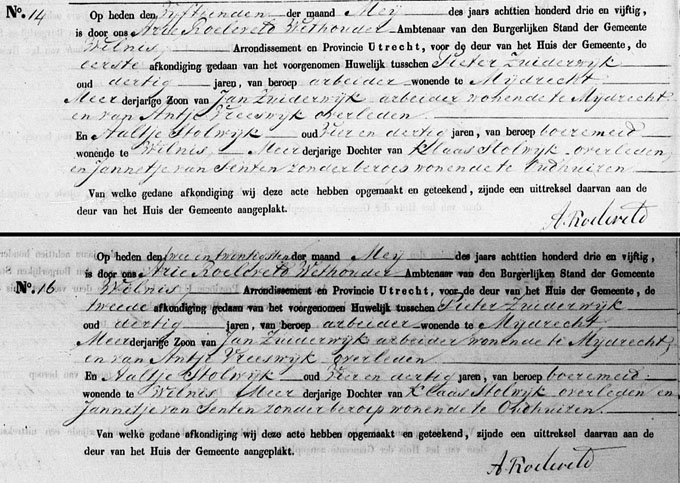 No. 14
Op heden den Vyftienden der maand Mey des jaars achttien honderd drie en vijftig,
is door ons Arie Roeleveld Wethouder Ambtenaar van den Burgerlijken Stand der Gemeente
Wilnis Arrondissement en Provincie Utrecht, voor de deur van het Huis der Gemeente, de
eerste afkondiging gedaan van het voorgenomen Huwelijk tusschen Pieter Zuiderwyk
oud dertig jaren, van beroep arbeider wonende te Mydrecht
Meer derjarige Zoon van Jan Zuiderwyk arbeider wonende te Mydrecht
en van Antje Vreeswyk overleden
En Aaltje Stolwyk oud Vier en dertig jaren, van beroep boeremeid
wonende te Wilnis Meer derjarige Dochter van Klaas Stolwyk overleden
en Jannetje van Senten zonder beroep wonende te Oudhuizen
Van welke gedane afkondiging wij deze acte hebben opgemaakt en geteekend, zijnde een uittreksel daarvan aan de
deur van het Huis der Gemeente aangeplakt.
A. Roeleveld
Op heden den twee en twintigsten der maand Mey des jaars achttien honderd drie en vijftig,
is door ons Arie Roeleveld Wethouder Ambtenaar van den Burgerlijken Stand der Gemeente
No. 16 Wilnis Arrondissement en Provincie Utrecht, voor de deur van het Huis der Gemeente, de
tweede afkondiging gedaan van het voorgenomen Huwelijk tusschen Pieter Zuiderwyk
oud dertig jaren, van beroep arbeider wonende te Mydrecht
Meer derjarige Zoon van Jan Zuiderwyk arbeider wonende te Mydrecht,
en van Antje Vreeswyk overleden
En Aaltje Stolwyk oud Vier en dertig jaren, van beroep boeremeid
wonende te Wilnis Meer derjarige Dochter van Klaas Stolwyk overleden en
Jannetje van Senten zonder beroep wonende te Oudhuizen
Van welke gedane afkondiging wij deze acte hebben opgemaakt en geteekend, zijnde een uittreksel daarvan aan de
deur van het Huis der Gemeente aangeplakt.
A. Roeleveld